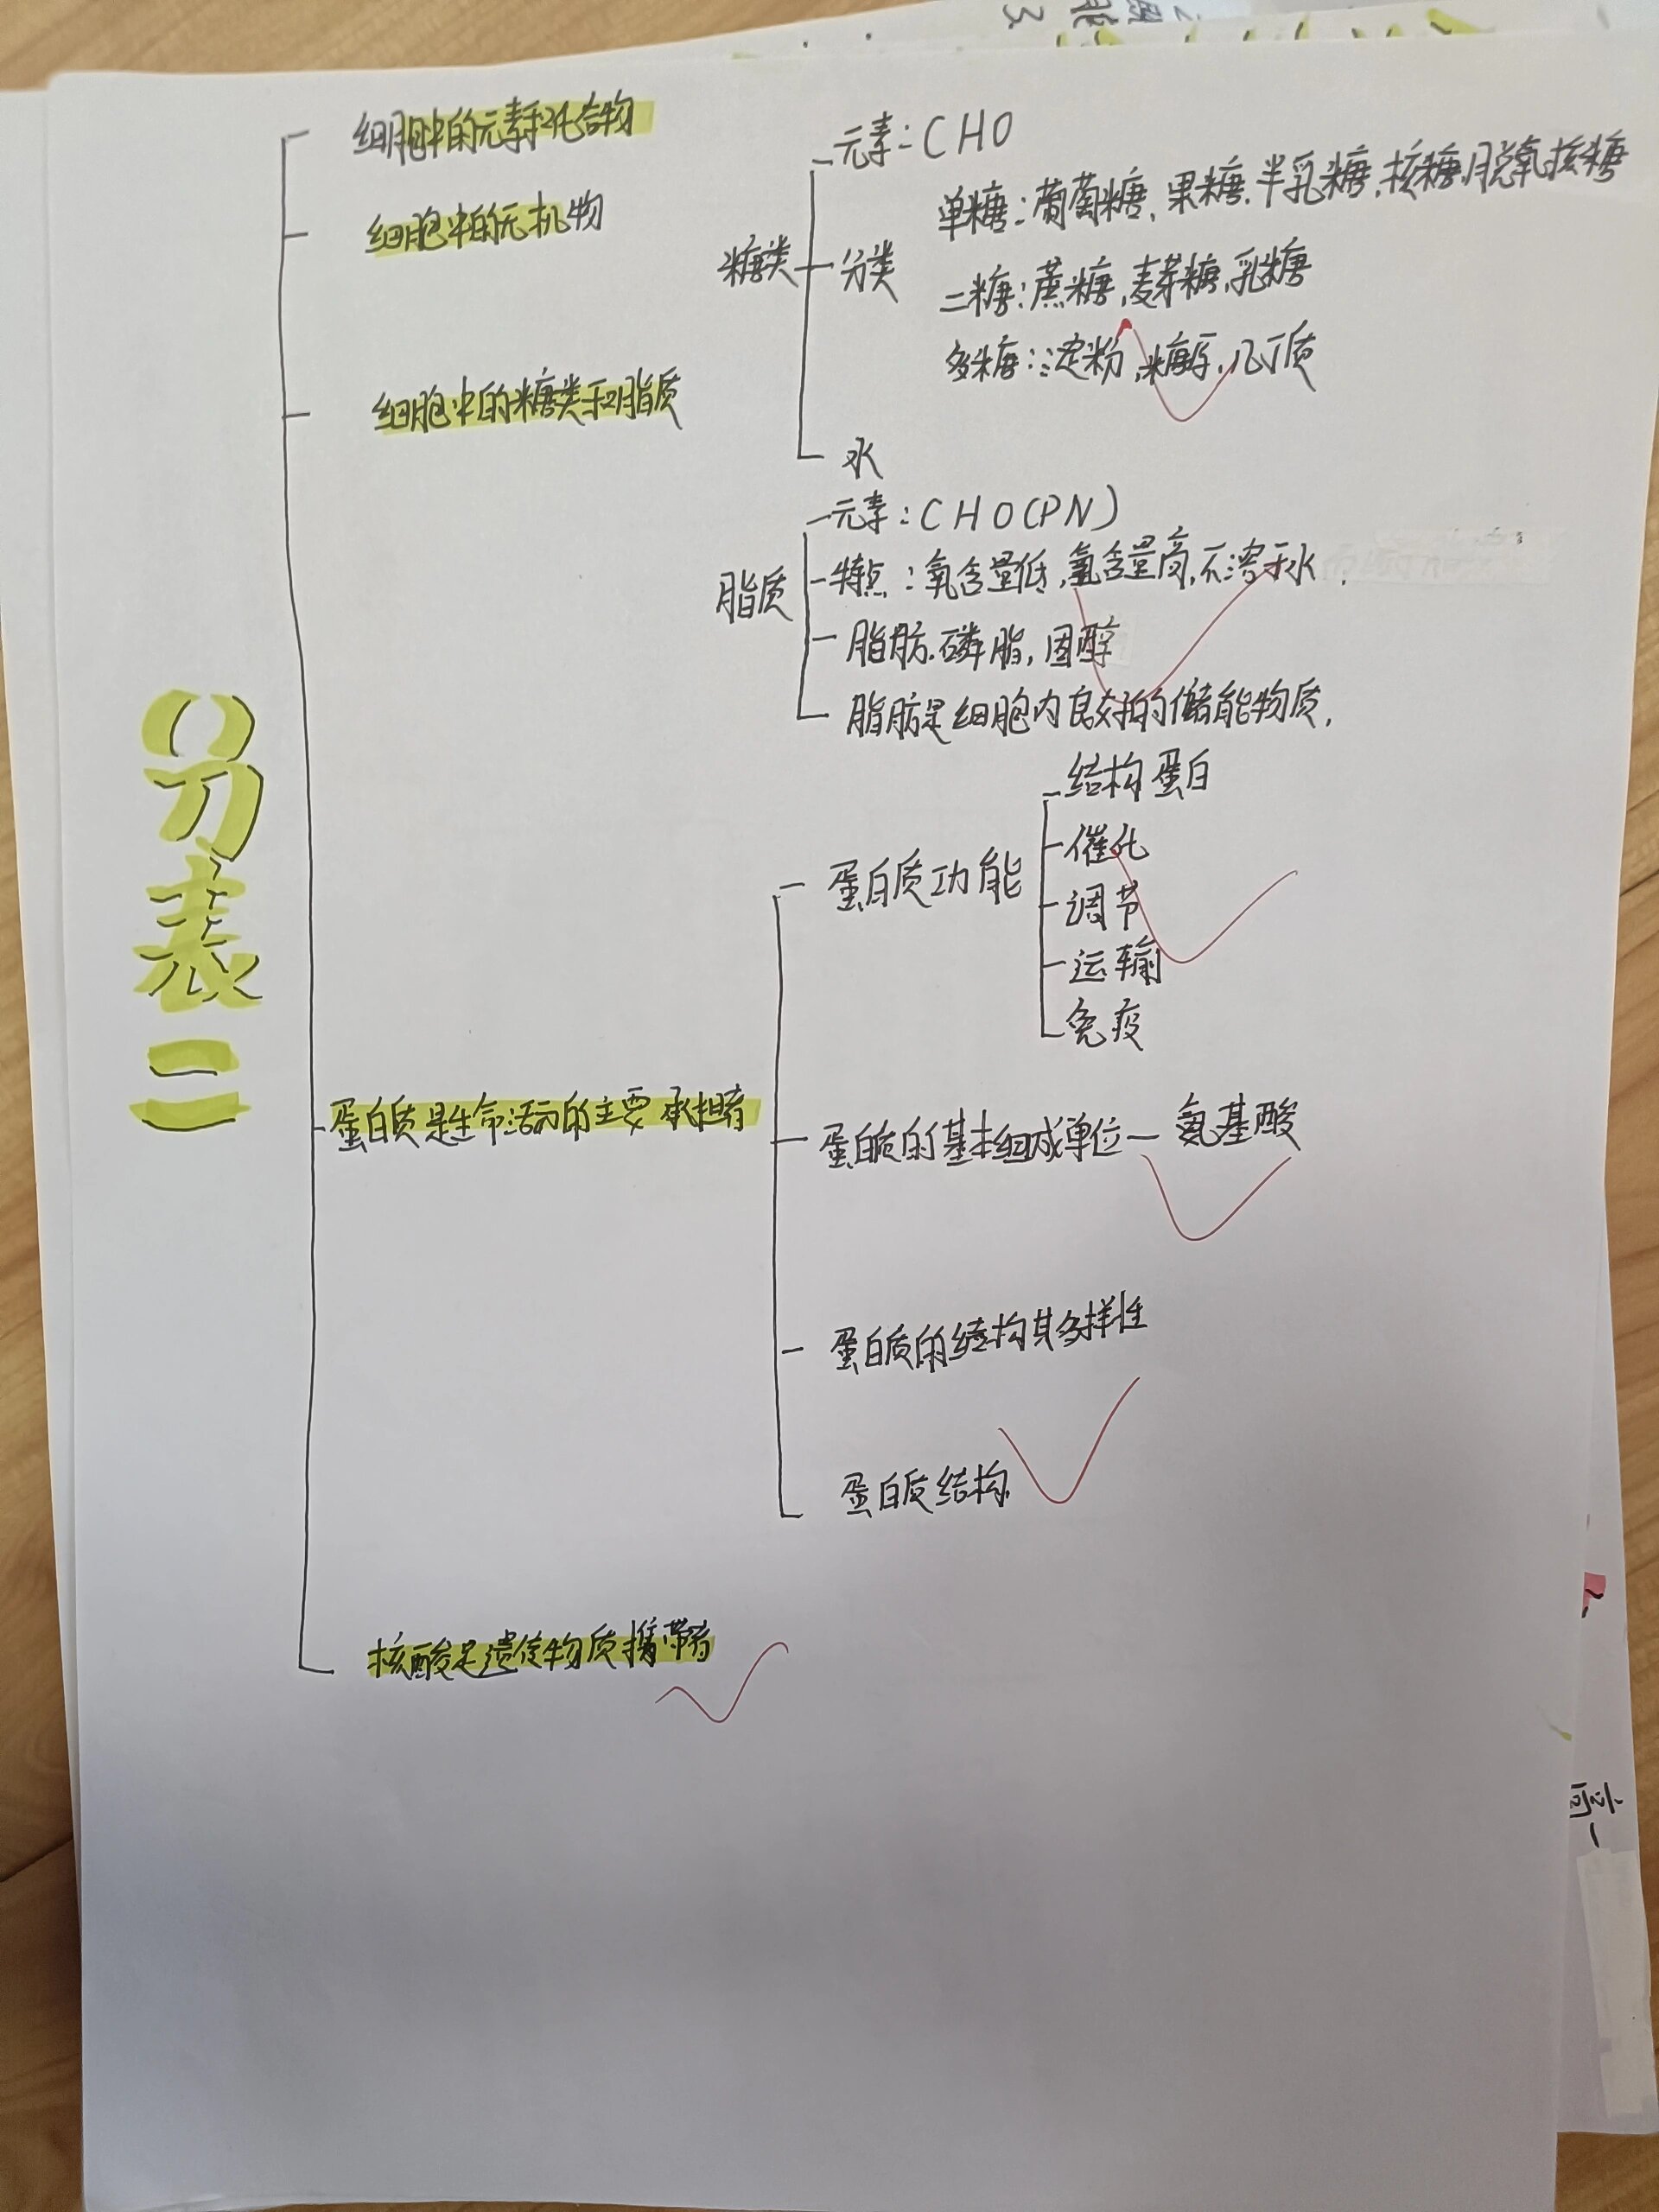 分表二
细胞中的元素和化合物
细胞中的无机物
细胞中的糖类和脂质
糖类
元素：CHO
分类
单糖：葡萄糖、果糖、半乳糖、核糖、脱氧核糖
二糖：蔗糖，麦芽糖，乳糖
多糖：淀粉，糖原，几丁质
水
脂质
元素：CHO(PN)
特点：氧含量低，氢含量高，不溶于水．
脂肪．磷脂，固醇
脂肪是细胞内良好的储能物质，
蛋白质是生命活动的主要承担者
蛋白质功能
结构蛋白
催化
调节
运输
免疫
蛋白质的基本组成单位—氨基酸
蛋白质的结构其多样性
蛋白质结构
核酸是遗传物质携带者
高一